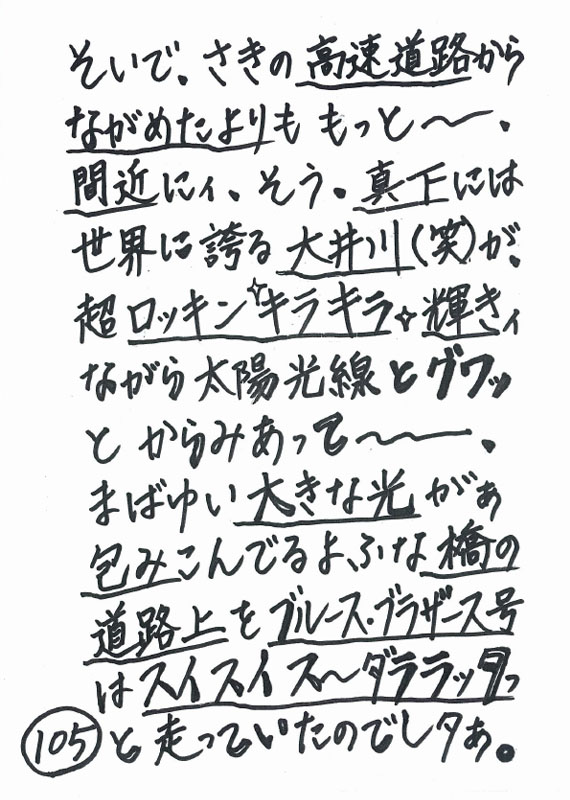 そいで。さきの高速道路から
ながめたよりも もっと〜〜。
間近にィ、そう。真下には
世界に誇る大井川(笑)が、
超ロッキン✧キラキラ✧輝きィ
ながら太陽光線とグワッ
と からみあって〜〜。
まばゆい大きな光がぁ
包みこんでるよふな橋の
道路上をブルース・ブラザース号
はスイスイス〜ダララッタっ
と走っていたのでしタぁ。
105